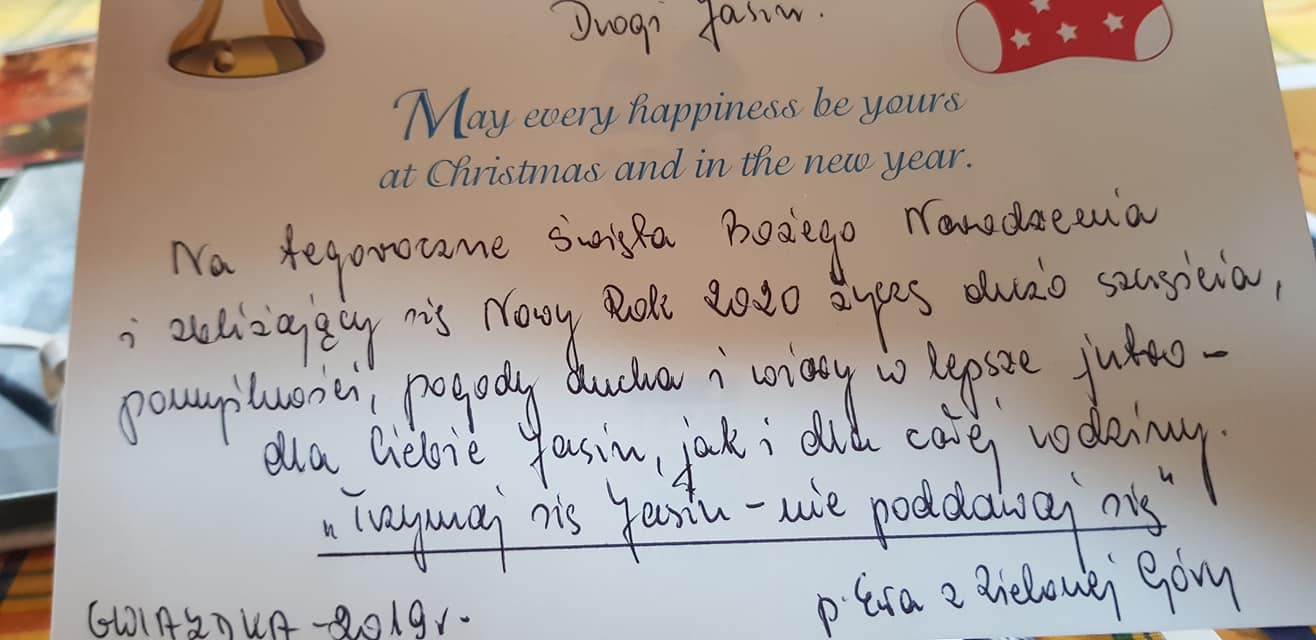 Drogi Jasiu.
May every happiness be yours
at Christmas and in the new year.
Na tegoroczne Święta Bożego Narodzenia
i zbliżający się Nowy Rok 2020 życzę dużo szczęścia,
pomyślności, pogody ducha i wiary w lepsze jutro -
dla Ciebie Jasiu, jak i dla całej rodziny.
„Trzymaj się Jasiu - nie poddawaj się"
p. Ewa z Zielonej Góry
GWIAZDKA - 2019 r.